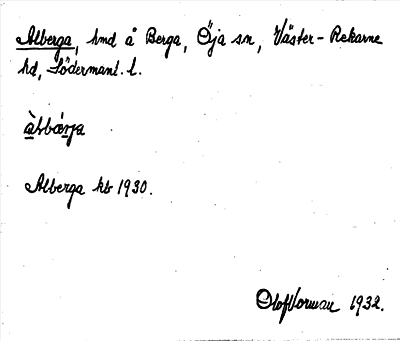 Alberga, hmd å Berga, Öja sn, Väster-Rekarne
hd, Södermanl. l.
àlbärja
Alberga kb 1930.
Olof Vorman 1932.